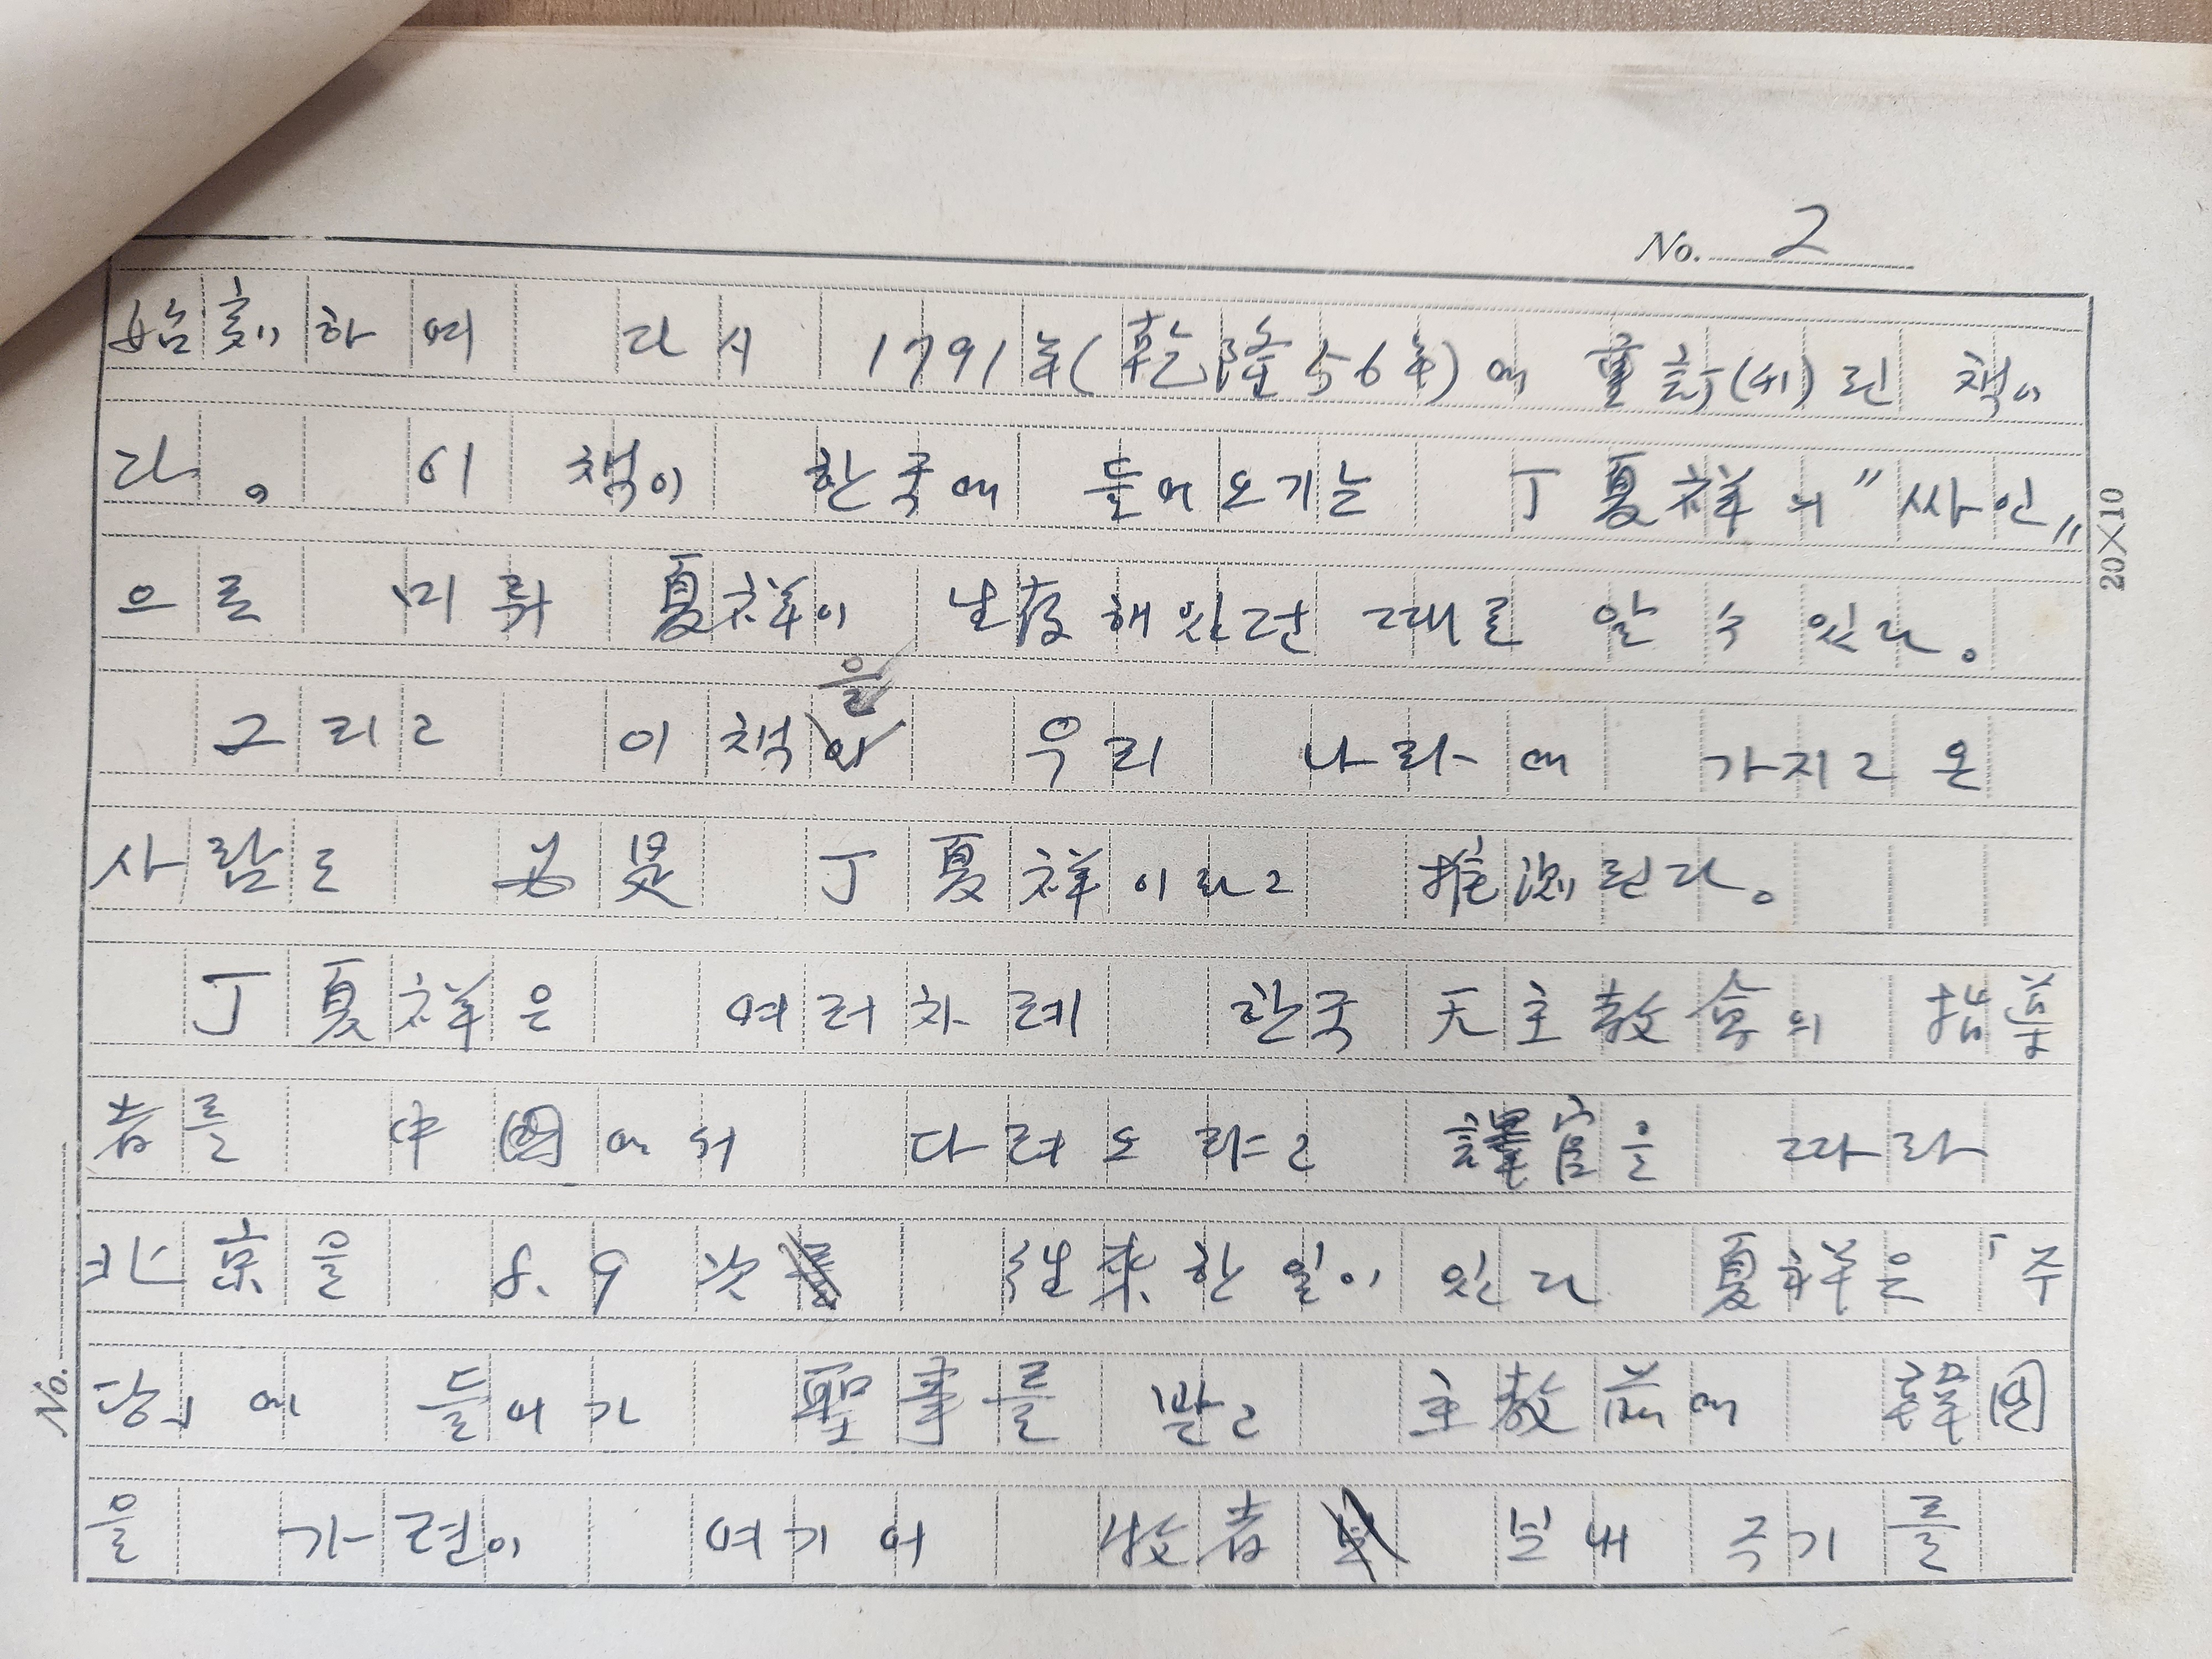 No. 2
始刻하며 다시 1791年(乾隆56年)에 重訂(세)된 책이
다。 이 책이 한국에 들어오기는 丁夏祥의 〃싸인〃
으로 미뤄 夏祥이 生存해있던 때를 알 수 있다。
을
그리고 이 책 우리 나라에 가지고 온
사람도 必是 丁夏祥이라고 推測된다。
丁夏祥은 여러차례 한국 天主教會의 指導
者를 中国에서 다려오라고 譯官을 따라
北京을 8、9次 往來한 일이 있다 夏祥은 「주
당」에 들어가 聖事를 받고 主教前에 韓国
을 가련이 여기어 牧者 보내 주기를
20×10
No.